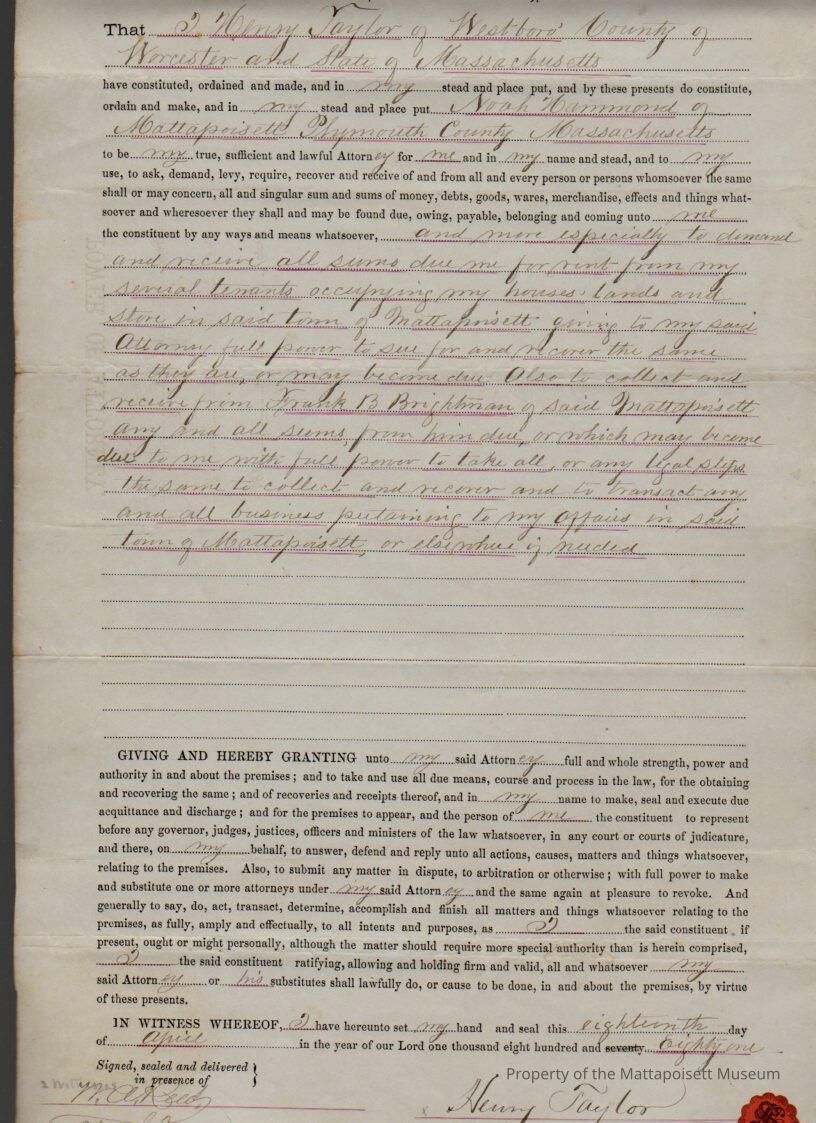 That I Henry Taylor of Westboro' County of
Worcester and State of Massachusetts
have constituted, ordained and made, and in my stead and place put, and by these presents do constitute,
ordain and make, and in my stead and place put Noah Hammond of
Mattapoisett Plymouth County Massachusetts
to be my true, sufficient and lawful Attorney for me and in my name and stead, and to my
use, to ask, demand, levy, require, recover and receive of and from all and every person or persons whomsoever the same
shall or may concern, all and singular sum and sums of money, debts, goods, wares, merchandise, effects and things what-
soever and wheresoever they shall and may be found due, owing, payable, belonging and coming unto me
the constituent by any ways and means whatsoever, and more especially to demand
and receive all sums due me for rent from my
several tenants occupying my houses lands and
store in said town of Mattapoisett giving to my said
Attorney full power to sue for and recover the same
as they are, or may become due. Also to collect and
receive from Frank B Brightman of said Mattapoisett
any and all sums, from him due, or which may become
due to me with full power to take all, or any legal steps
the same to collect and recover and to transact any
and all business pertaining to my affairs in said
town of Mattapoisett, or elsewhere if needed
GIVING AND HEREBY GRANTING unto my said Attorney full and whole strength, power and
authority in and about the premises; and to take and use all due means, course and process in the law, for the obtaining
and recovering the same; and of recoveries and receipts thereof, and in my name to make, seal and execute due
acquittance and discharge; and for the premises to appear, and the person of me the constituent to represent
before any governor, judges, justices, officers and ministers of the law whatsoever, in any court or courts of judicature,
and there, on my behalf, to answer, defend and reply unto all actions, causes, matters and things whatsoever,
relating to the premises. Also, to submit any matter in dispute, to arbitration or otherwise; with full power to make
and substitute one or more attorneys under my said Attorney and the same again at pleasure to revoke. And
generally to say, do, act, transact, determine, accomplish and finish all matters and things whatsoever relating to the
premises, as fully, amply and effectually, to all intents and purposes, as I the said constituent, if
present, ought or might personally, although the matter should require more special authority than is herein comprised,
I the said constituent ratifying, allowing and holding firm and valid, all and whatsoever my
said Attorney or his substitutes shall lawfully do, or cause to be done, in and about the premises, by virtue
of these presents.
IN WITNESS WHEREOF, I have hereunto set my hand and seal this eighteenth day
of April in the year of our Lord one thousand eight hundred and seventy Eighty one
Signed, sealed and delivered
in presence of
Property of the Mattapoisett Museum
x Henry Taylor